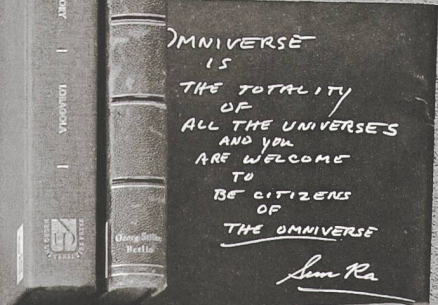 OMNIVERSE
IS
THE TOTALITY
OF
ALL THE UNIVERSES
AND YOU
ARE WELCOME
TO
BE CITIZENS
OF
THE OMNIVERSE
Sun Ra
Berlin